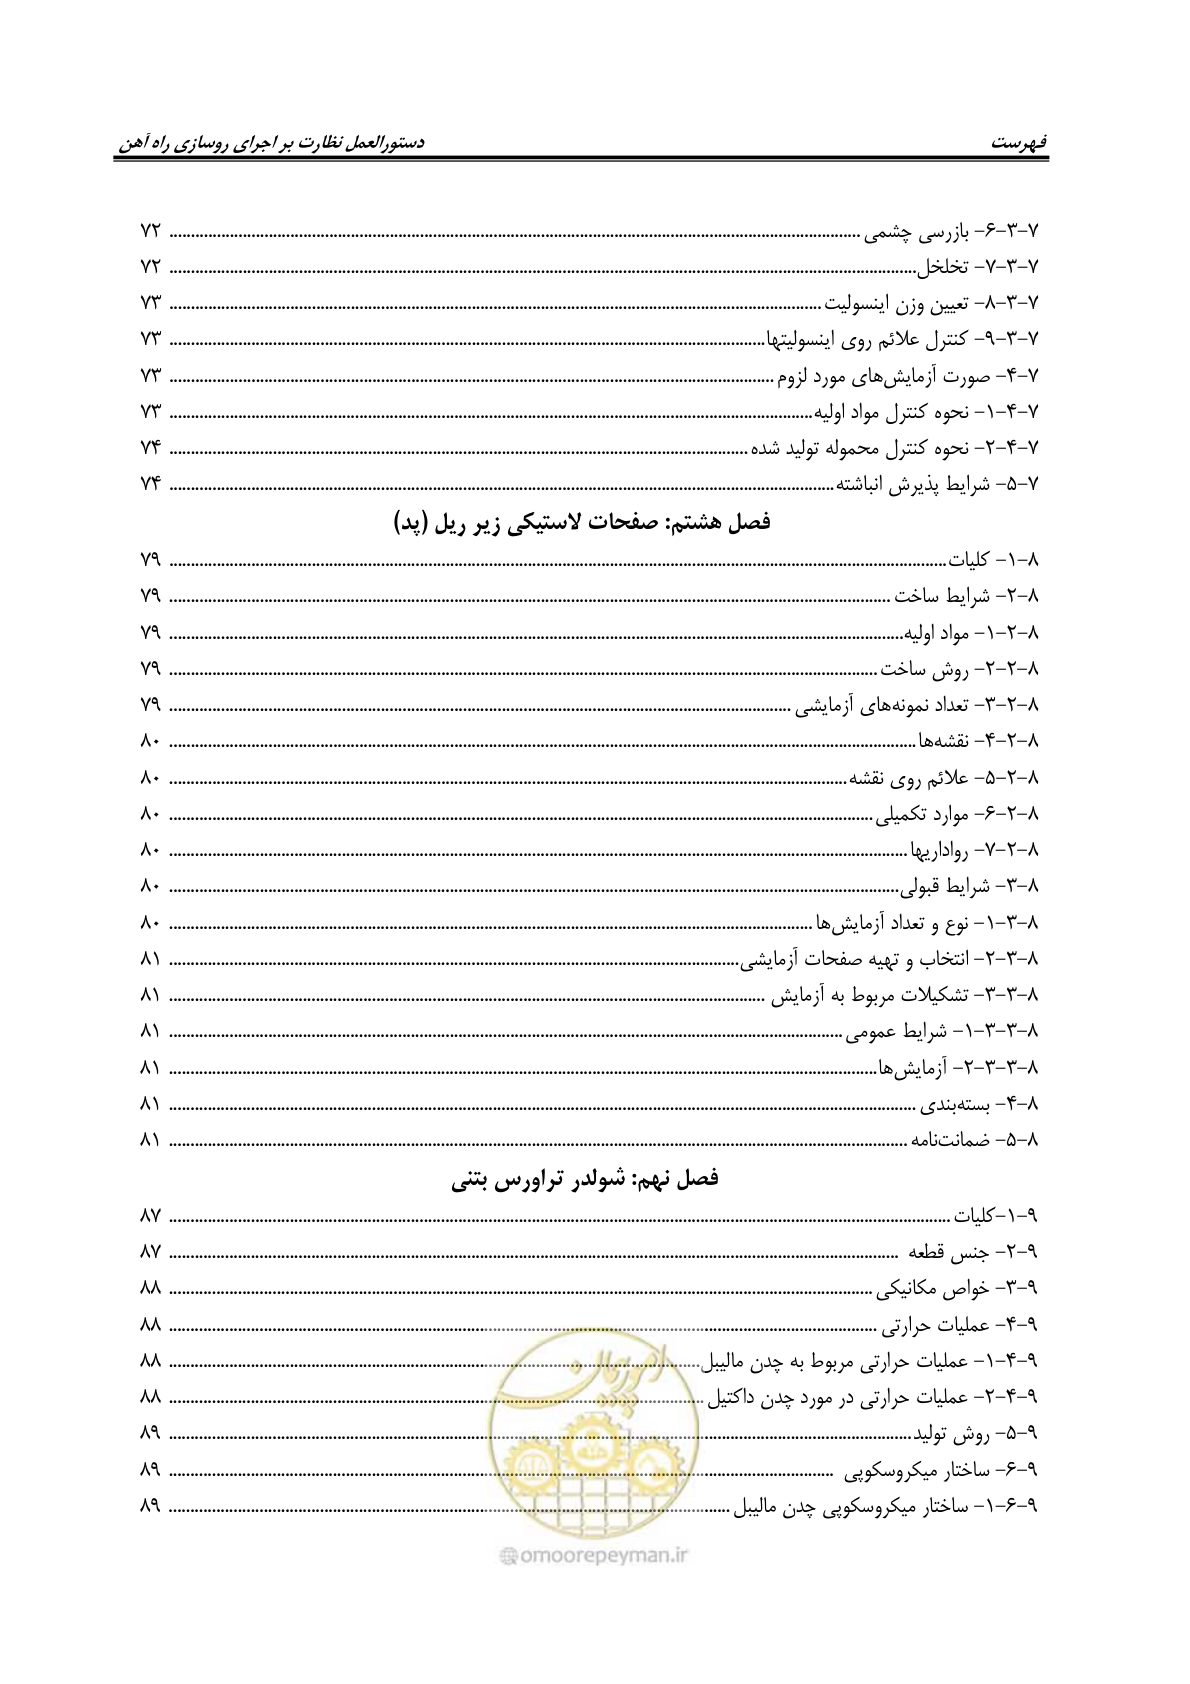 فهرست دستورالعمل نظارت بر اجرای روسازی راه آهن
۷-۳-۶- بازرسی چشمی ........ ۷۲
۷-۳-۷- تخلخل ........ ۷۲
۷-۳-۸- تعیین وزن اینسولیت ........ ۷۳
۷-۳-۹- کنترل علائم روی اینسولیتها ........ ۷۳
۷-۴- صورت آزمایش‌های مورد لزوم ........ ۷۳
۷-۴-۱- نحوه کنترل مواد اولیه ........ ۷۳
۷-۴-۲- نحوه کنترل محموله تولید شده ........ ۷۴
۷-۵- شرایط پذیرش انباشته ........ ۷۴
فصل هشتم: صفحات لاستیکی زیر ریل (پد)
۸-۱- کلیات ........ ۷۹
۸-۲- شرایط ساخت ........ ۷۹
۸-۲-۱- مواد اولیه ........ ۷۹
۸-۲-۲- روش ساخت ........ ۷۹
۸-۲-۳- تعداد نمونه‌های آزمایشی ........ ۷۹
۸-۲-۴- نقشه‌ها ........ ۸۰
۸-۲-۵- علائم روی نقشه ........ ۸۰
۸-۲-۶- موارد تکمیلی ........ ۸۰
۸-۲-۷- رواداریها ........ ۸۰
۸-۳- شرایط قبولی ........ ۸۰
۸-۳-۱- نوع و تعداد آزمایش‌ها ........ ۸۰
۸-۳-۲- انتخاب و تهیه صفحات آزمایشی ........ ۸۱
۸-۳-۳- تشکیلات مربوط به آزمایش ........ ۸۱
۸-۳-۳-۱- شرایط عمومی ........ ۸۱
۸-۳-۳-۲- آزمایش‌ها ........ ۸۱
۸-۴- بسته‌بندی ........ ۸۱
۸-۵- ضمانت‌نامه ........ ۸۱
فصل نهم: شولدر تراورس بتنی
۹-۱-کلیات ........ ۸۷
۹-۲- جنس قطعه ........ ۸۷
۹-۳- خواص مکانیکی ........ ۸۸
۹-۴- عملیات حرارتی ........ ۸۸
۹-۴-۱- عملیات حرارتی مربوط به چدن مالیبل ........ ۸۸
۹-۴-۲- عملیات حرارتی در مورد چدن داکتیل ........ ۸۸
۹-۵- روش تولید ........ ۸۹
۹-۶- ساختار میکروسکوپی ........ ۸۹
۹-۶-۱- ساختار میکروسکوپی چدن مالیبل ........ ۸۹
امور پیمان
@omoorepeyman.ir